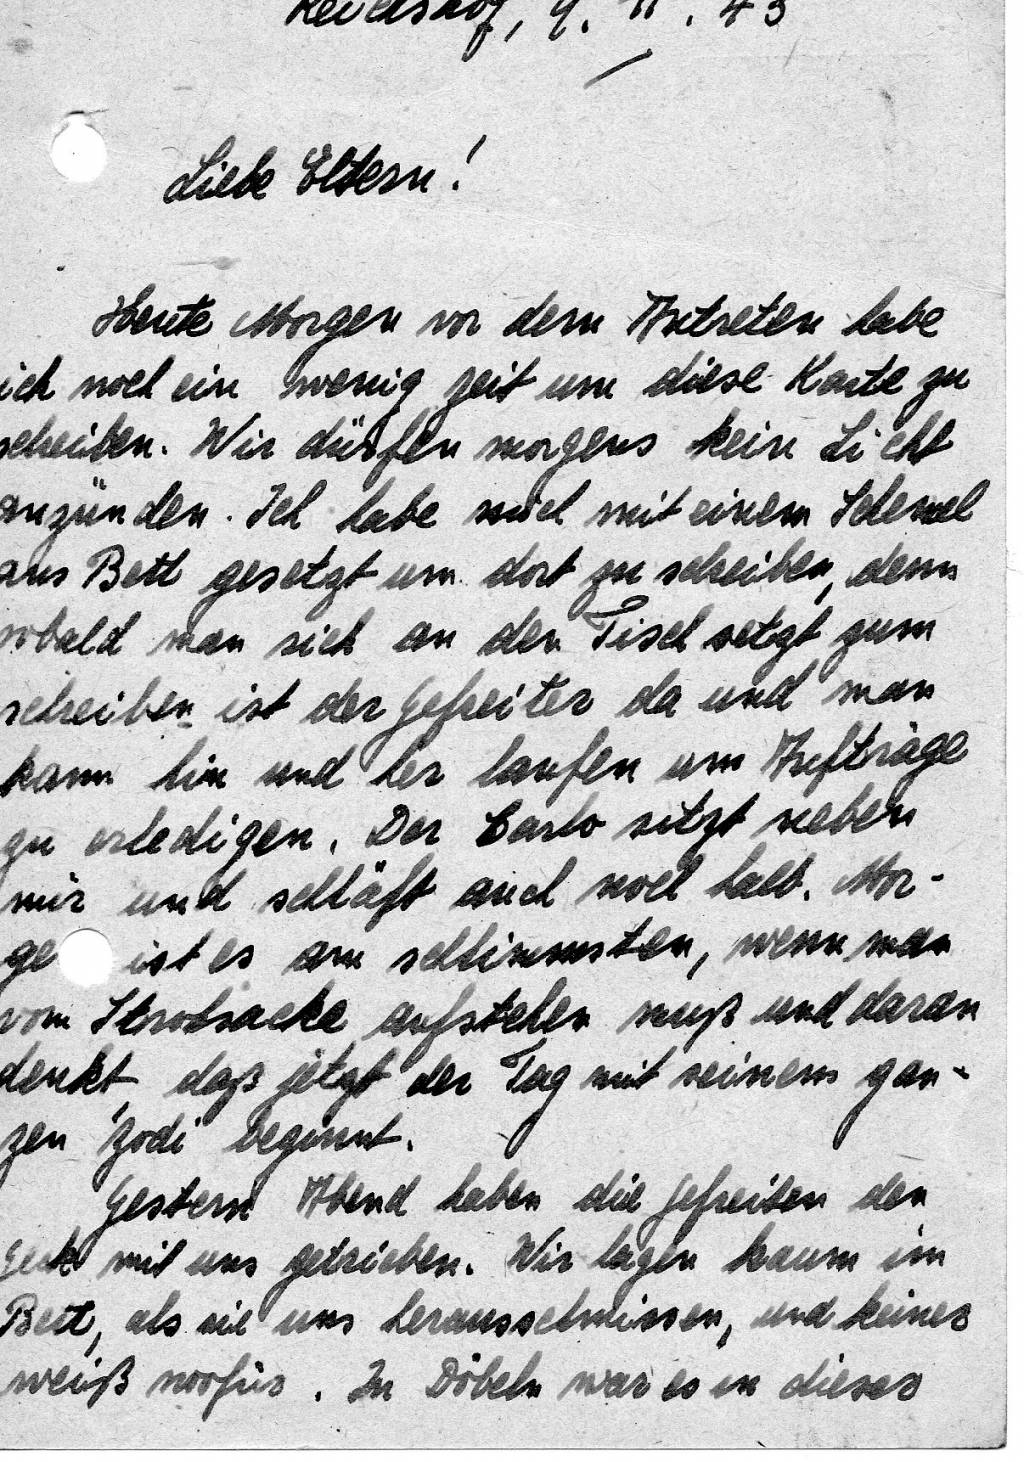 9. 11. 43
Liebe Eltern!
Heute Morgen vor dem Antreten habe
ich noch ein wenig Zeit um diese Karte zu
schreiben. Wir dürfen morgens kein Licht
anzünden. Ich habe mich mit einem Schemel
ans Bett gesetzt um dort zu schreiben, denn
sobald man sich an den Tisch setzt zum
schreiben ist der Gefreiter da und man
kann hin und her laufen um Aufträge
zu erledigen. Der Carlo sitzt neben
mir und schläft auch noch halb. Mor-
ge ist es am schlimmsten, wenn man
vom Strohsacke aufstehen muß und daran
denkt, daß jetzt der Tag mit seinem gan-
zen 'Zodi' beginnt.
Gestern Abend haben die Gefreiten den
Geck mit uns getrieben. Wir lagen kaum im
Bett, als sie uns herausschmissen, und keiner
weiß wofür. In Döbeln war es in dieser